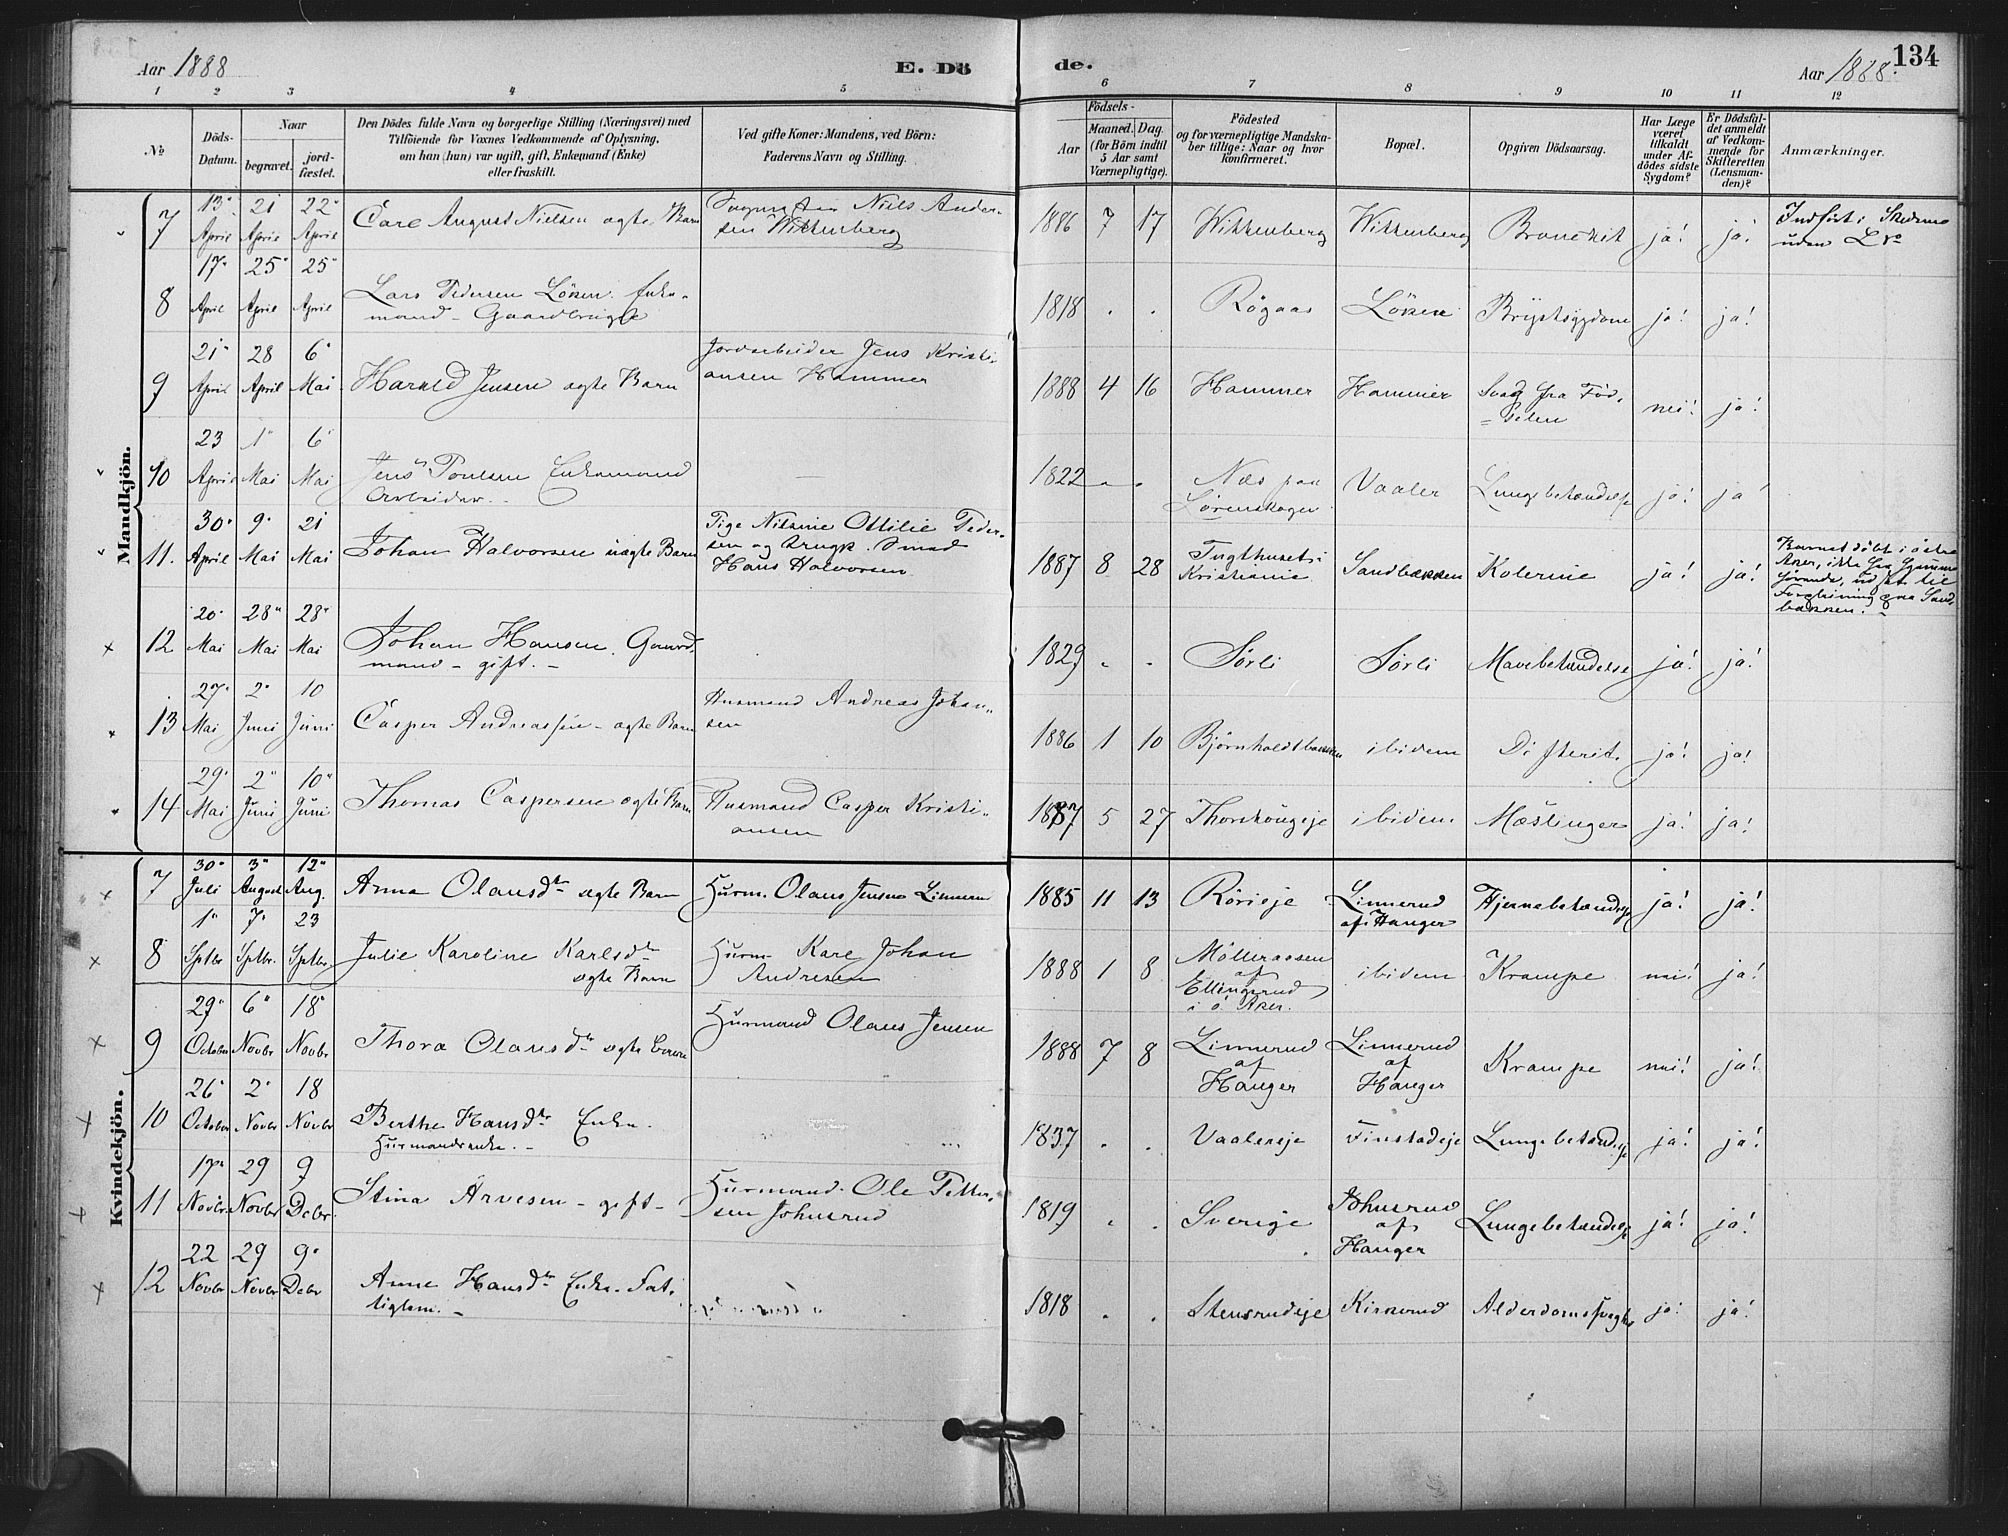 Aar 1888
E. Dö
de.
Aar 1888.
134
1 2 3 4 5 6 7 8 9 10 11 12
No
Döds-
Datum.
Naar
begravet.
jord-
fæstet.
Den Dödes fulde Navn og borgerlige Stilling (Næringsvei) med
Tilföiende for Voxnes Vedkommende af Oplysning,
om han (hun) var ugift, gift, Enkemand (Enke)
eller fraskilt.
Ved gifte Koner: Mandens, ved Börn:
Faderens Navn og Stilling.
Födsels-
Aar
Maaned. Dag.
(for Börn indtil
5 Aar samt
Værnepligtige).
Födested
og for værnepligtige Mandska-
ber tillige: Naar og hvor
konfirmeret.
Bopæl.
Opgiven Dödsaarsag.
Har Læge
været
tilkaldt
under Af-
dödes sidste
Sygdom?
Er Dödsfal-
det anmeldt
af Vedkom-
mende for
Skifteretten
(Lensman-
den)?
Anmærkninger.
Mandkjön.
7 13 April 21 April 22 April Carl August Nielsen ægte Barn
Niels Ander-
sen Wittenberg
1886 7 17 Wittenberg Wittenberg Bronchit ja! ja!
Indført i Skedsmo
uden No
8 17 April 25 April 25 April Lars Pedersen Löken. Enke-
mand - Gaardbruger
1818 " " Rögaas Löken Brystsygdom ja! ja!
9 21 April 28 April 6 Mai Harald Jensen ægte Barn
Jordarbeider Jens Kristi-
ansen Hammer
1888 4 16 Hammer Hammer Svag fra Fød-
selen nei! ja!
10 23 April 1 Mai 6 Mai Jens Poulsen Enkemand
Arbeider.
1822 " " Næs paa
Lørenskogen Vaaler Lungebetændelse ja! ja!
11. 30 April 9 Mai 21 Mai Johan Halvorsen uægte Barn
Pige Nilsine Ottilie Peder-
sen og Smed
Hans Halvorsen
1887 8 28 Tugthuset i
Kristiania Sandbakken Kolerine ja! ja!
Barnet døbt i östre
Aker, ikke fra
til
paa Sand-
bakken.
12 20 Mai 28 Mai 28 Mai Johan Hansen. Gaard-
mand - gift.
1829 " " Sørli Sørli Mavebetændelse ja! ja!
13 27 Mai 2 Juni 10 Juni Casper Andreassen - ægte Barn
Husmand Andreas Johan-
sen
1886 1 10 Bjørnholdtbakken ibidem Difterit. ja! ja!
14 29 Mai 2 Juni 10 Juni Thomas Caspersen ægte Barn
Husmand Casper Kristi-
ansen
1887 5 27 ibidem Mæslinger ja! ja!
Kvindekjön.
7 30 Juli 3 August 12 Aug. Anna Olausdtr ægte Barn
Husm. Olaus Jensen Linnerud
1885 11 13 Rörieje Linnerud
af Hauger Hjernebetændelse ja! ja!
8 1 Sptbr 7 Sptbr. 23 Sptbr Julie Karoline Karlsdtr
ægte Barn
Husm. Karl Johan
Andresen
1888 1 8 Mölleraasen
af
Ellingsrud
i ö. Aker. ibidem Krampe nei! ja!
9 29 October 6 Novbr 18 Novbr Thora Olausdtr ægte Barn
Husmand Olaus Jensen
1888 7 8 Linnerud
af
Hauger Linnerud
af
Hauger Krampe nei! ja!
10 26 October 2 Novbr 18 Novbr Berthe Hansdtr Enke.
Husmandsenke.
1837 " " Vaalereje Finstadeje Lungebetændelse ja! ja!
11 17 Novbr. 29 Novbr 9 Debr. Stina Arvesen - gift -
Husmand. Ole Petter-
sen Johnsrud
1819 " " Sverige Johnsrud
af
Hauger Lungebetændelse ja! ja!
12 22 Novbr 29 Novbr 9 Debr Anne Hansdtr Enke. Fat-
tiglem.
1818 " " Stensrudeje Kirkerud Alderdomssvaghed ja! ja!